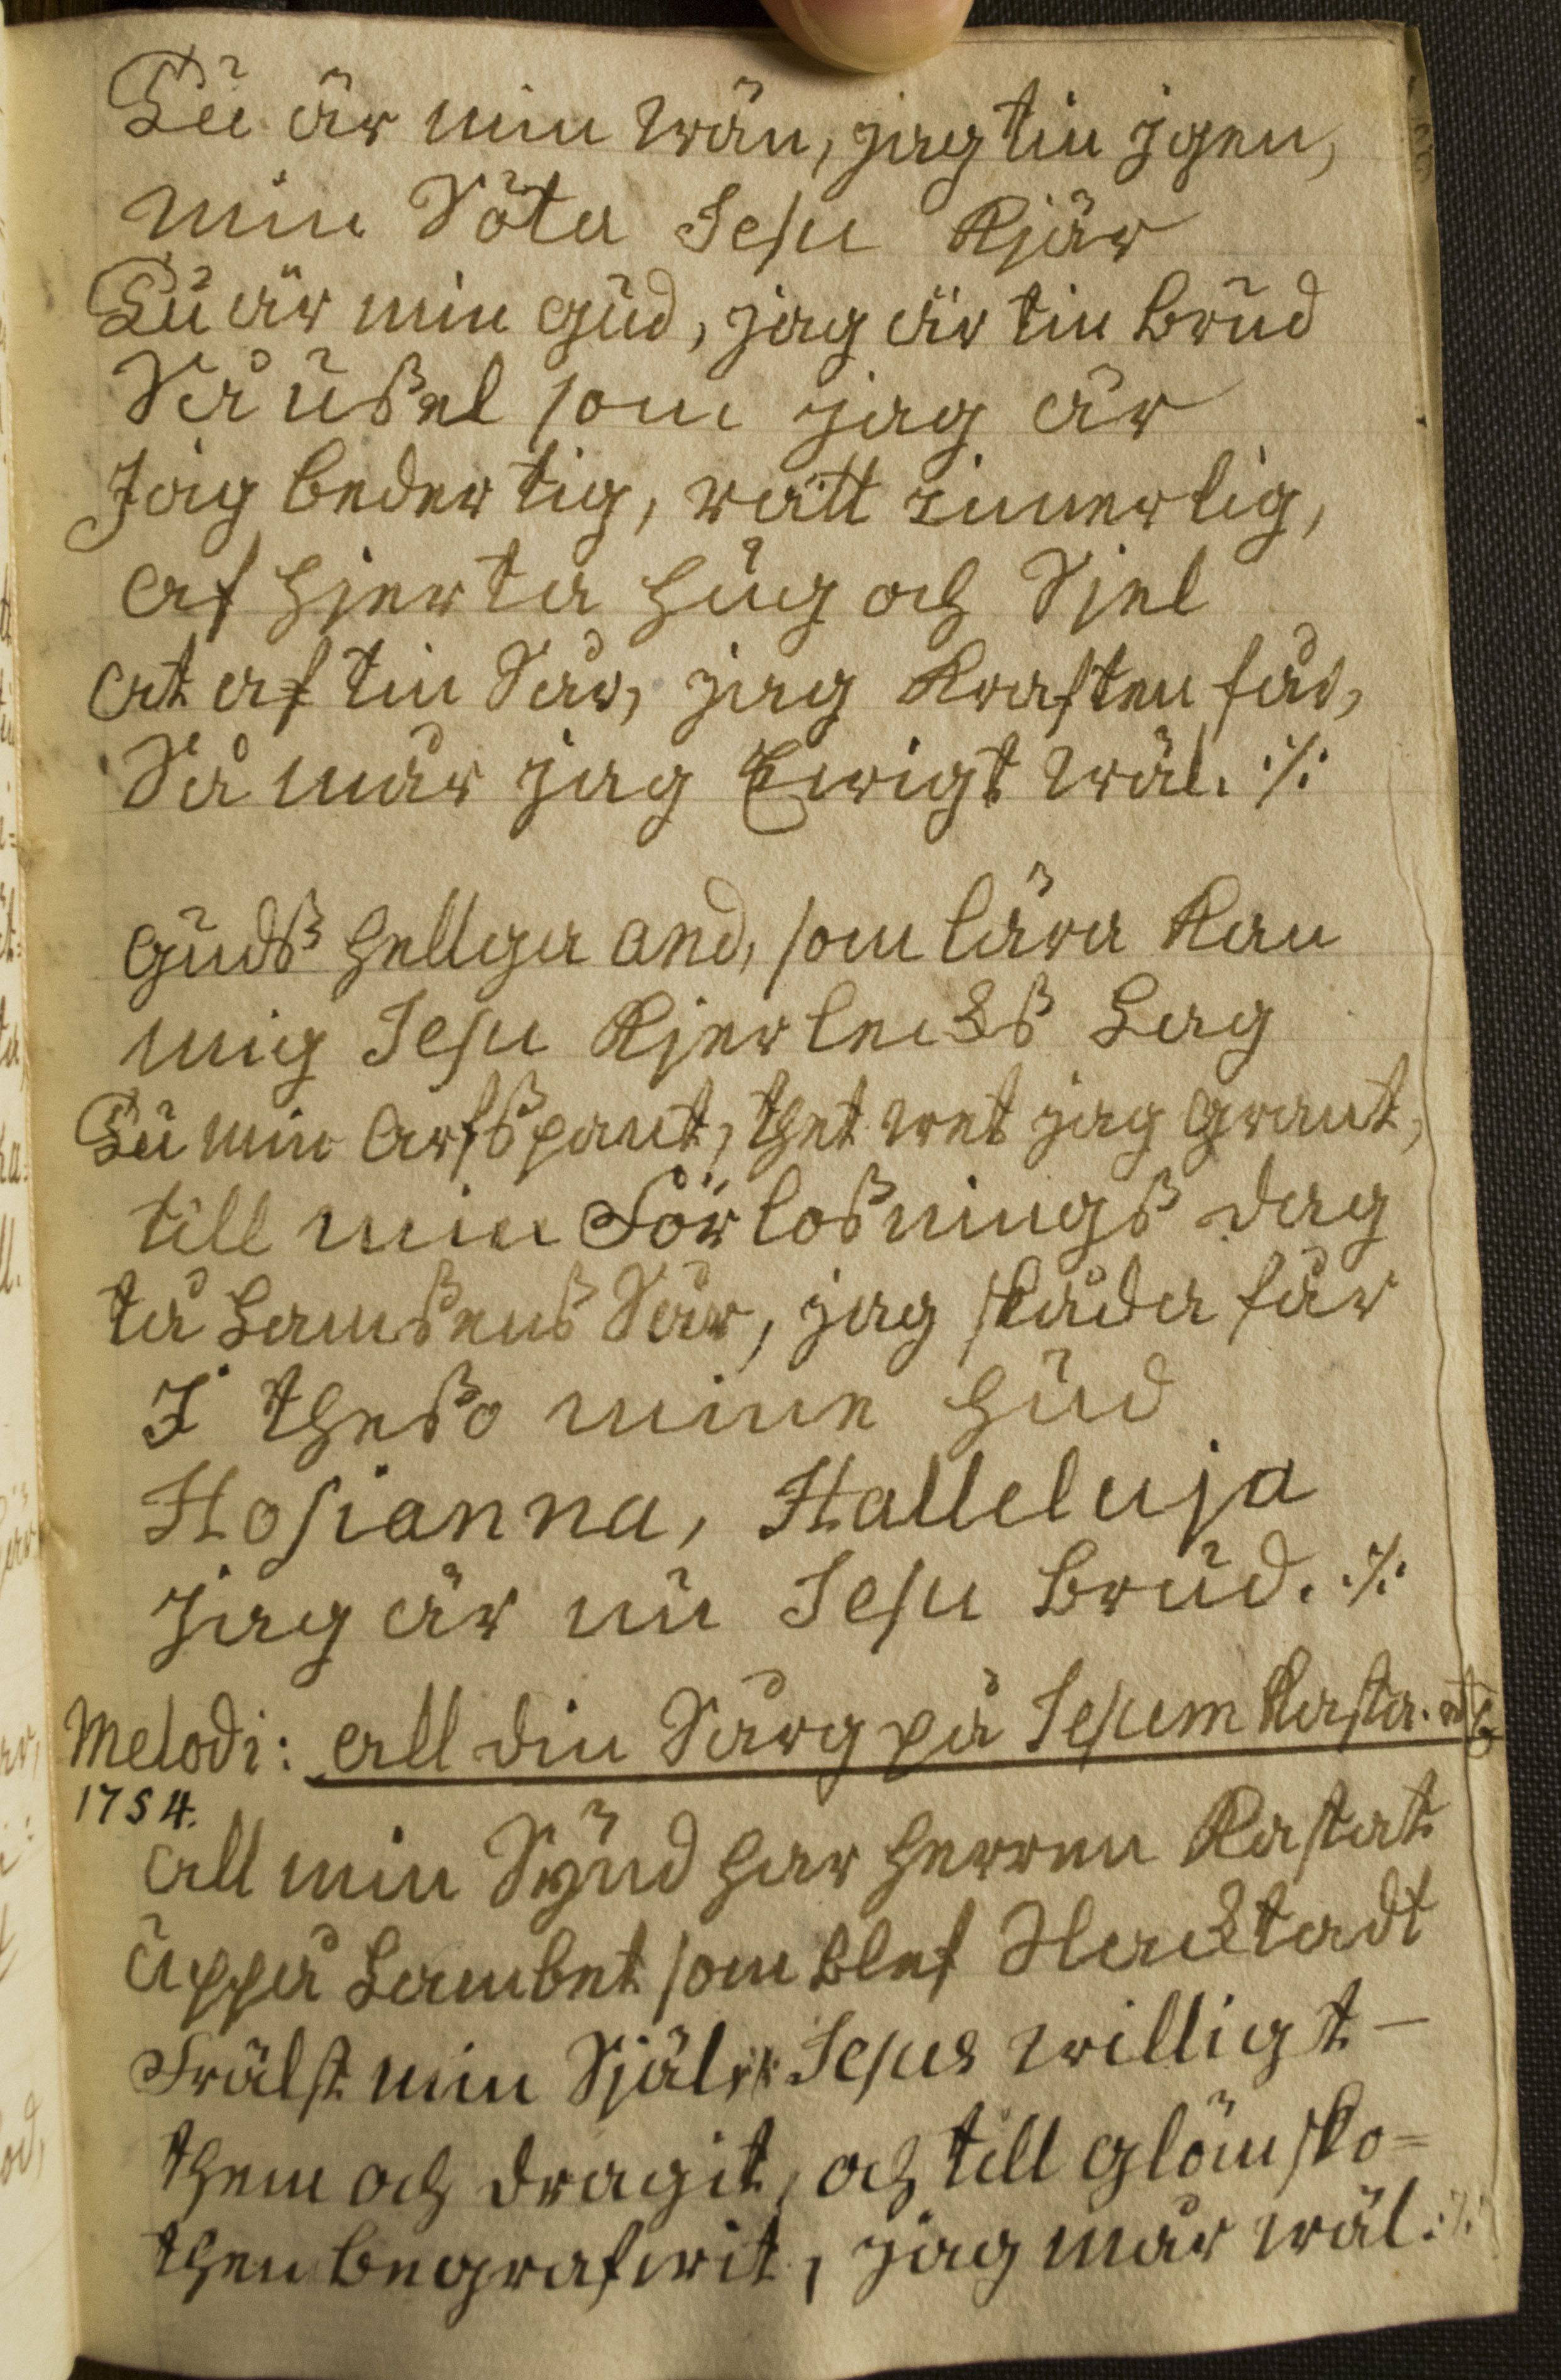 Tu är min wän, jag tin jgen,
min Söta Jesu Kjär
Tu är min gud, jag är tin brud
Så ußel som jag är
Jag beder tig, rätt innerlig,
af hjerta hug och Sjel
at af tin Sår, jag kraften får,
Så mår jag Ewigt wäl. ·/.
Gudß hellga and, som lära kan
mig Jesu Kjerleckß Lag
Tu min arfßpant, thet wet jag grant,
till min Förloßningß dag
tå Lamßenß Sår, jag skåda får
I theßo mine hud
Hosianna, Halleluja
jag är nu Jesu brud. ·/.
Melodi: all din Sårg på Jesum kasta.
1754.
all min Synd har herren Kastat
uppå Lambet som blef Slacktadt
Frälst min Själ Jesus willigt –
them och dragit, och till glömsko=
then begrafwit, jag mår wäl ·/.